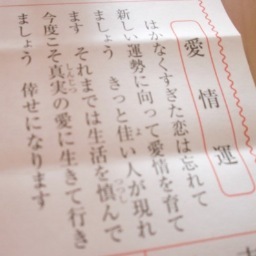 愛情運
はかなくすぎた恋は忘れて
新しい運勢に向って愛情を育て
ましょう きっと佳い人が現れ
ます それまでは生活を慎んで
今度こそ真実の愛に生きて行き
ましょう 倖せになります